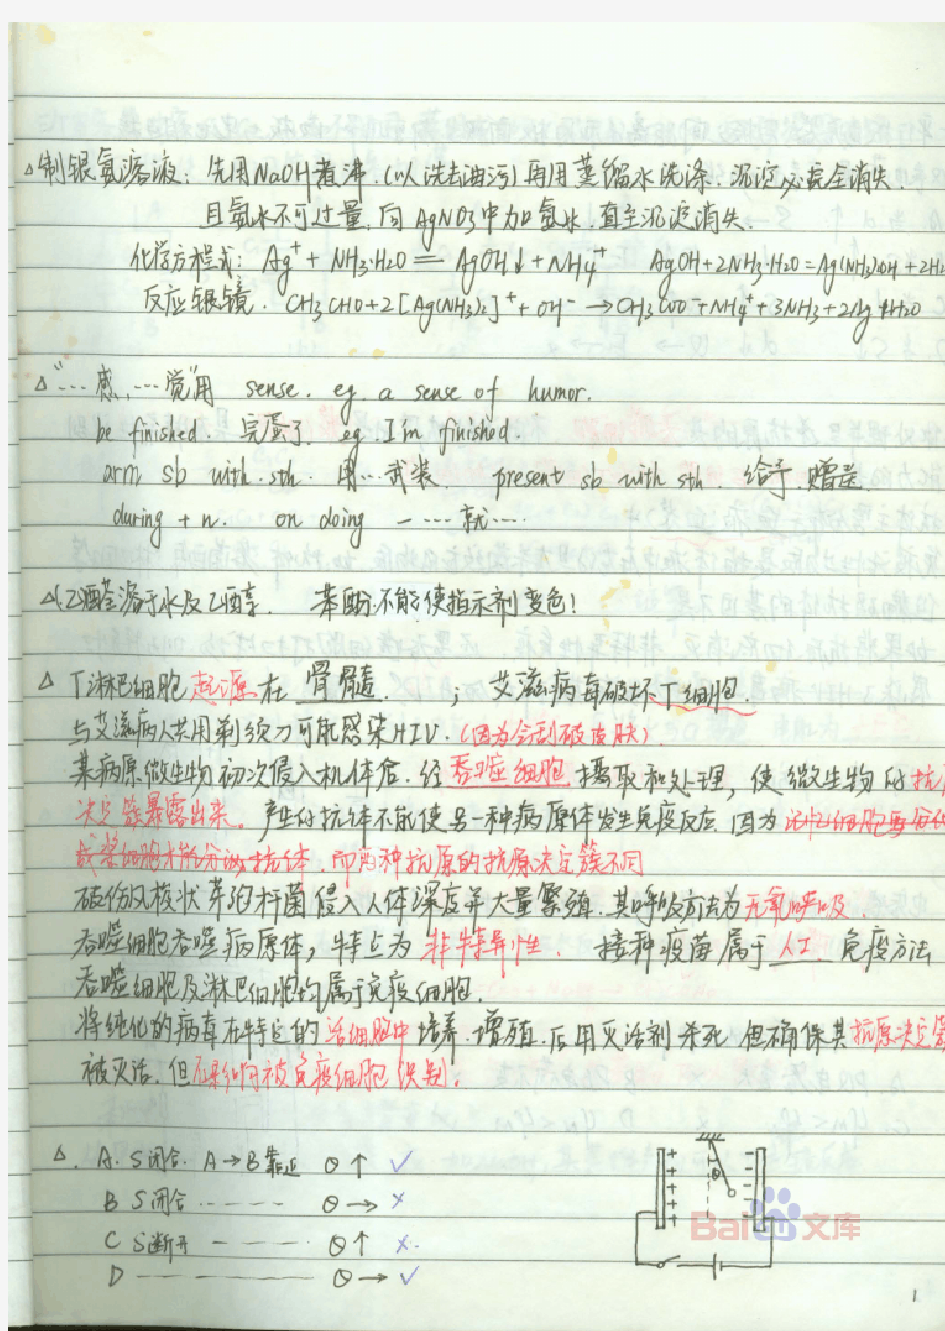 △制银氨溶液：先用NaOH煮沸.(以洗去油污)再用蒸馏水洗涤.沉淀必完全消失.
且氨水不可过量.向AgNO3中加氨水.直至沉淀消失.
化学方程式：Ag⁺+NH3·H2O=AgOH↓+NH4⁺ AgOH+2NH3·H2O=Ag(NH3)2OH+2H2
反应银镜.CH3CHO+2[Ag(NH3)2]⁺+OH⁻→CH3COO⁻+NH4⁺+3NH3+2Ag+H2O
△"…感,…觉"用 sense. eg. a sense of humor.
be finished. 完蛋了. eg. I'm finished.
arm sb with sth. 用…武装. present sb with sth 给予.赠送.
during + n. on doing 一……就….
△乙醛溶于水及乙醇. 苯酚不能使指示剂变色!
△ T淋巴细胞起源在 骨骼髓. ; 艾滋病毒破坏T细胞.
与艾滋病人共用剃须刀可能感染HIV.(因为会刮破皮肤).
某病原微生物初次侵入机体后.经吞噬细胞摄取和处理,使微生物的抗原
决定簇暴露出来.产生的抗体不能使另一种病原体发生免疫反应.因为此B细胞要分化
成浆细胞才能分泌抗体.而两种抗原的抗原决定簇不同
破伤风梭状芽孢杆菌侵入人体深度并大量繁殖.其呼吸方式为无氧呼吸.
吞噬细胞吞噬病原体,特点为非特异性. 接种疫苗属于 人工 免疫方法
吞噬细胞及淋巴细胞均属于免疫细胞.
将纯化的病毒在特定的活细胞中培养.增殖.后用灭活剂杀死 但确保其抗原决定簇
被灭活.但不影响被免疫细胞识别.
△. A. S闭合. A→B靠近 θ↑ ✓
B S闭合 …… θ→ ×
C S断开 …… θ↑ ×.
D …… θ→ ✓
Bai 文库
1